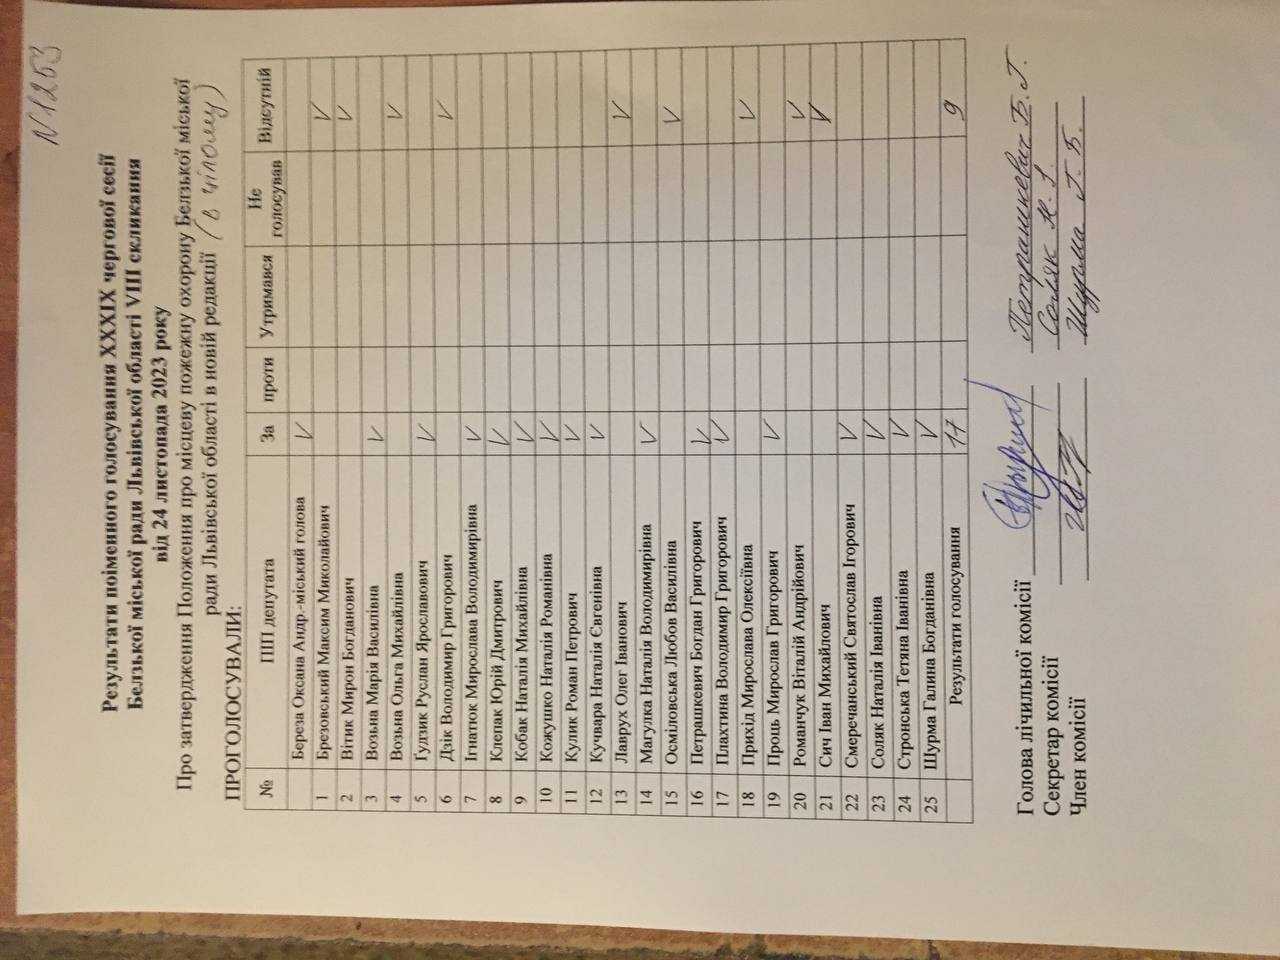 N 1253
Результати поіменного голосування XXXIX чергової сесії
Белзької міської ради Львівської області VIII скликання
від 24 листопада 2023 року
Про затвердження Положення про місцеву пожежну охорону Белзької міської
ради Львівської області в новій редакції (в цілому)
ПРОГОЛОСУВАЛИ:
№ ПІП депутата За проти Утримався Не голосував Відсутній
Береза Оксана Андр.-міський голова V
1 Брезовський Максим Миколайович V
2 Вітик Мирон Богданович V
3 Возьна Марія Василівна V
4 Возьна Ольга Михайлівна V
5 Гулзик Руслан Ярославович V
6 Дзік Володимир Григорович V
7 Ігнатюк Мирослава Володимирівна V
8 Клепак Юрій Дмитрович V
9 Кобак Наталія Михайлівна V
10 Кожушко Наталія Романівна V
11 Кулик Роман Петрович V
12 Кучвара Наталія Євгенівна V
13 Лаврух Олег Іванович V
14 Магулка Наталія Володимирівна V
15 Осміловська Любов Василівна V
16 Петрашкевич Богдан Григорович V
17 Плахтина Володимир Григорович V
18 Прихід Мирослава Олексіївна V
19 Проць Мирослав Григорович V
20 Романчук Віталій Андрійович V
21 Сич Іван Михайлович V
22 Смеречанський Святослав Ігорович V
23 Соляк Наталія Іванівна V
24 Стронська Тетяна Іванівна V
25 Шурма Галина Богданівна V
Результати голосування 17 9
Голова лічильної комісії Петрашкевич Б. Г.
Секретар комісії Соляк Н. І.
Член комісії Шурма Г. Б.